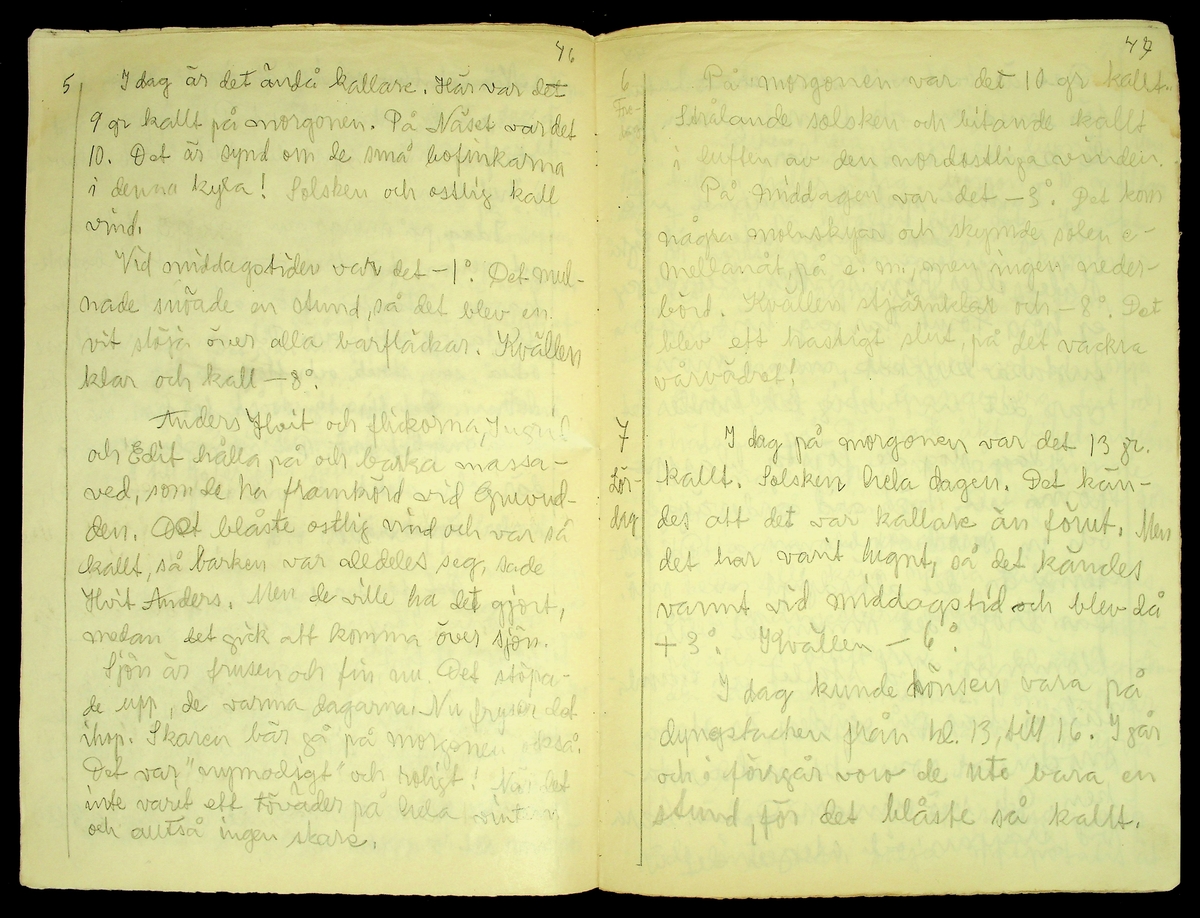 46
5 I dag är det ändå kallare. Här var det
9 gr kallt på morgonen. På Näset var det
10. Det är synd om de små bofinkarna
i denna kyla! Solsken och ostlig kall
vind.
Vid middagstiden var det -1°. Det mul-
nade snöade en stund, så det blev en
vit slöja över alla barfläckar. Kvällen
klar och kall -8°.
Anders Hvit och flickorna, Ingrid
och Edit hålla på och barka massa-
ved, som de ha framkörd vid
den. Det blåste ostlig vind och var så
kallt, så barken var alldeles seg, sade
Hvit Anders. Men de ville ha det gjort,
medan det gick att komma över sjön.
Sjön är frusen och fin nu. Det stöpa-
de upp, de varma dagarna. Nu fryser det
ihop. Skaren bär gå på morgonen också.
Det var "nymodigt" och roligt! När det
inte varit ett töväder på hela vintern
och alltså ingen skare.
47
6 På morgonen var det 10 gr kallt.
Fre-
dag
Strålande solsken och bitande kallt
i luften av den nordostliga vinden.
På middagen var det -3°. Det kom
några molnskyar och skymde solen e-
mellanåt, på e. m., men ingen neder-
börd. Kvällen stjärnklar och -8°. Det
blev ett hastigt slut, på det vackra
vårvädret!
7 I dag på morgonen var det 13 gr.
Lör-
dag
kallt. Solsken hela dagen. Det kän-
des att det var kallare än förut. Men
det har varit lugnt, så det kändes
varmt vid middagstid och blev då
+3°. Kvällen -6°.
I dag kunde hönsen vara på
dyngstacken från kl. 13, till 16. I går
och i förrgår voro de ute bara en
stund, för det blåste så kallt.